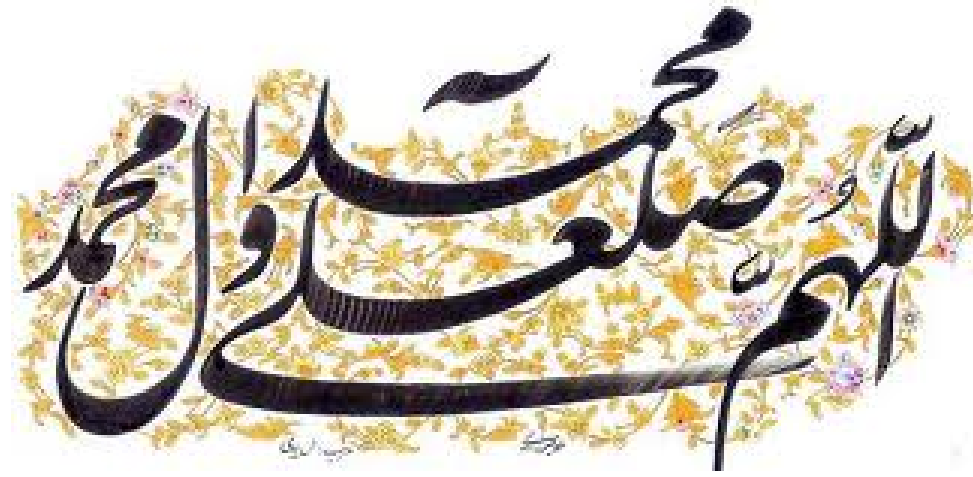 اللّٰهُمَّ صل علی محمد و آل محمد